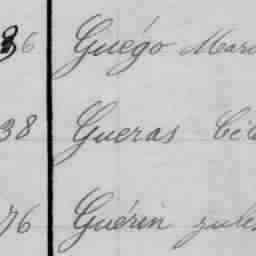 36 Guégo Mar
38 Gueras Cé
76 Guérin jules